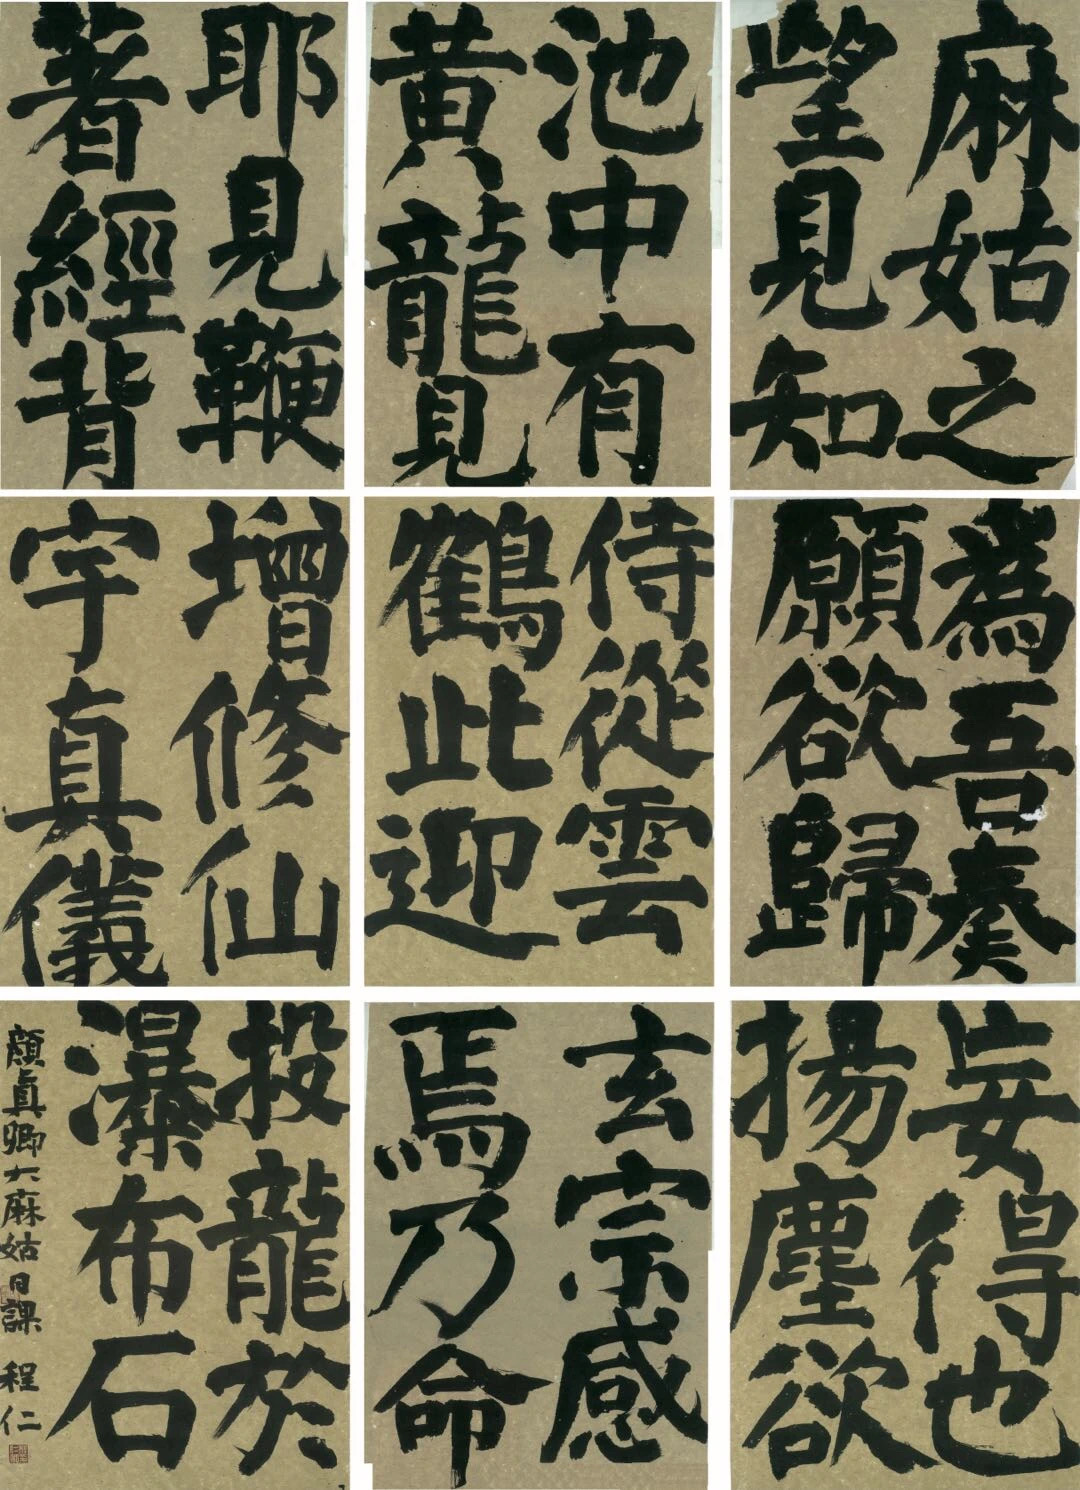 麻姑之
望見知
池中有
黄龍見
耶見鞭
著經背
為吾奏
願欲歸
侍從雲
鶴此迎
增修仙
宇真儀
妄得也
揚塵欲
玄宗感
焉乃命
投龍於
瀑布石
顔真卿大麻姑日課 程仁